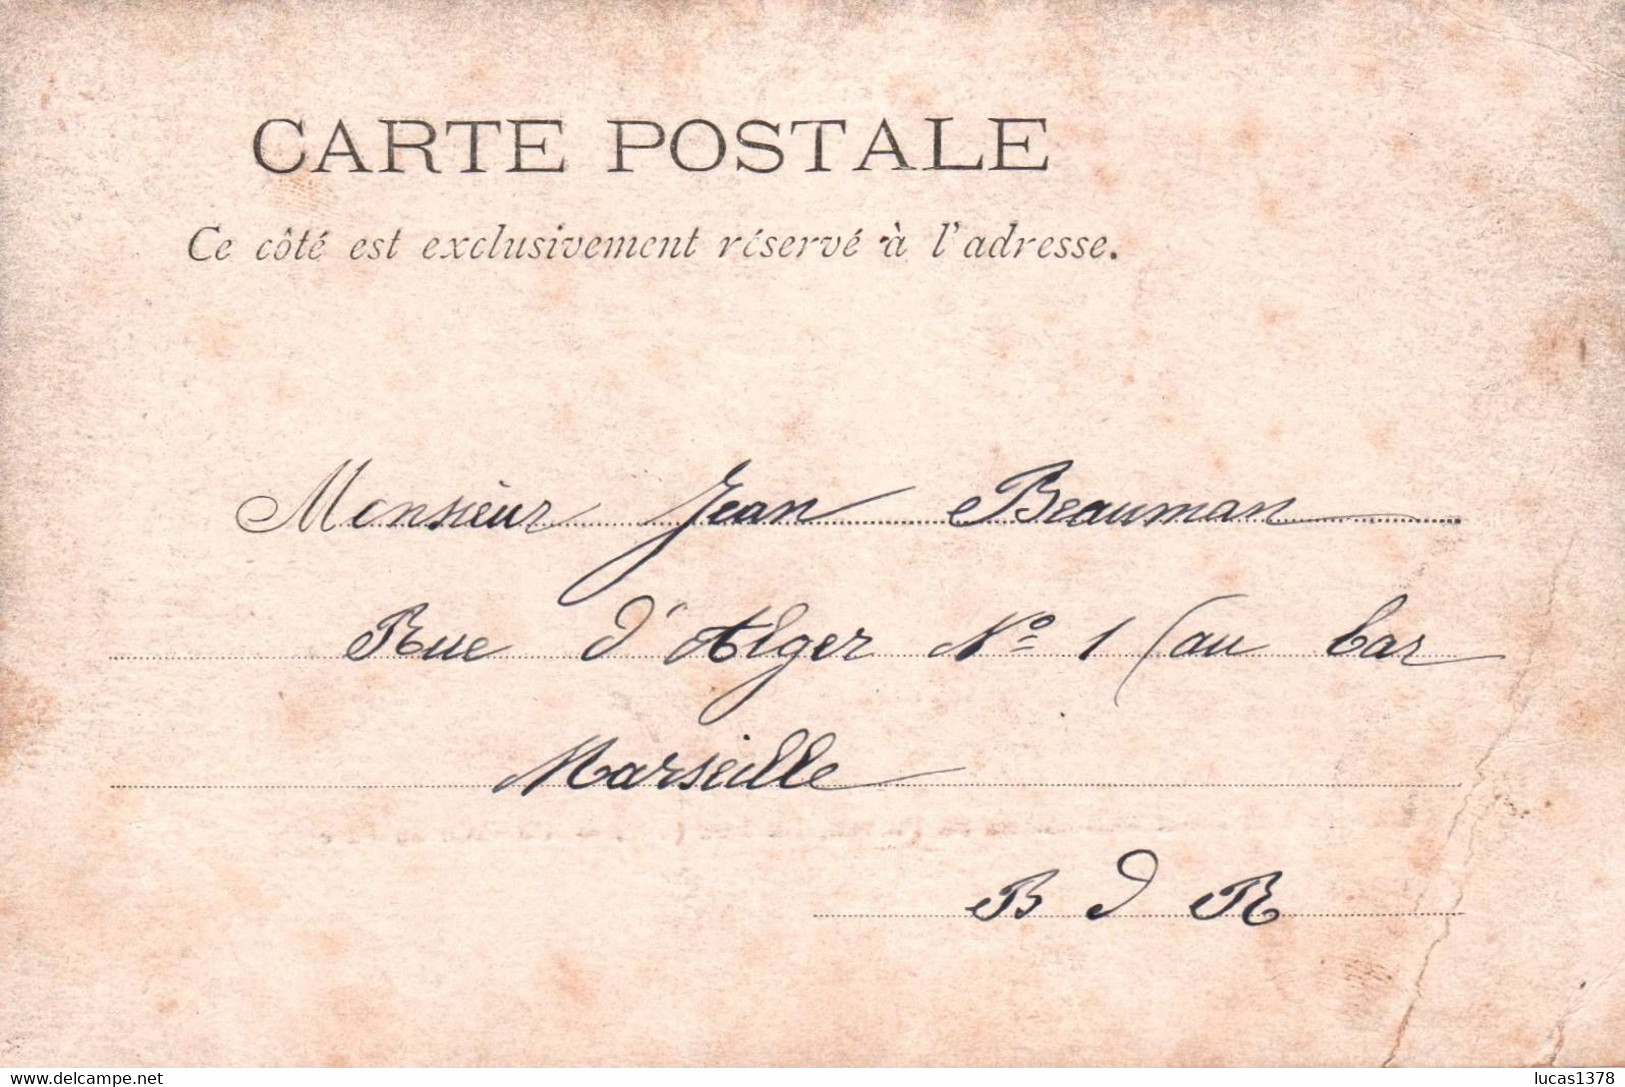 CARTE POSTALE
Ce côté est exclusivement réservé à l'adresse.
Monsieur Jean Beauman
Rue d'Alger Nº 1 (au bar
Marseille
B d R
www.delcampe.net
lucas1378